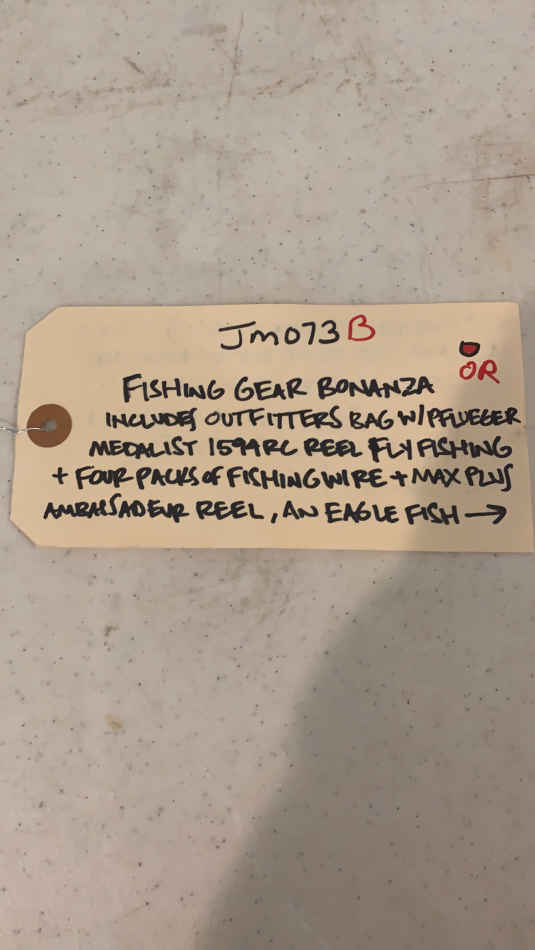 Jm073B
OR
FISHING GEAR BONANZA
INCLUDES OUTFITTERS BAG W/PFLUEGER
MEDALIST 1594RC REEL FLY FISHING
+ FOUR PACKS OF FISHING WIRE + MAX PLUS
AMBASSADEUR REEL, AN EAGLE FISH →